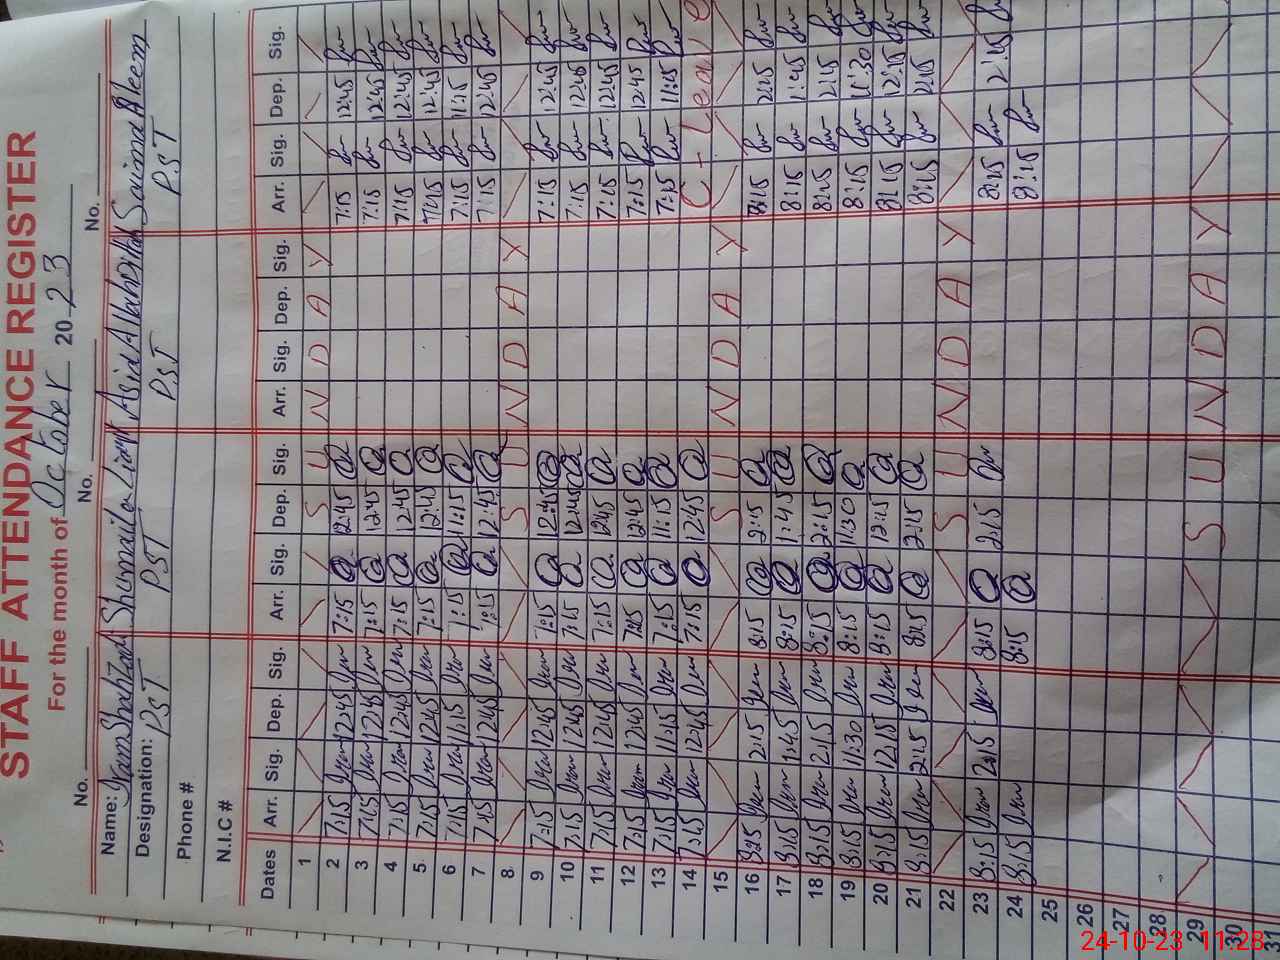 STAFF ATTENDANCE REGISTER
For the month of October 2023
No. No. No.
Name: Iram Shahzadi Shumaila Liaqat Asia Allah Ditta Saima Aleem
Designation: PST PST P.S.T P.S.T
Phone #
N.I.C #
Dates Arr. Sig. Dep. Sig. Arr. Sig. Dep. Sig. Arr. Sig. Dep. Sig. Arr. Sig. Dep. Sig.
1 S U N D A Y
2 7:15 Iram 12:45 Iram 7:15 12:45 7:15 12:45
3 7:15 Iram 12:45 Iram 7:15 12:45 7:15 12:45
4 7:15 Iram 12:45 Iram 7:15 12:45 7:15 12:45
5 7:15 Iram 12:45 Iram 7:15 12:45 7:15 12:45
6 7:15 Iram 11:15 Iram 7:15 11:15 7:15 11:15
7 7:15 Iram 12:45 Iram 7:15 12:45 7:15 12:45
8 S U N D A Y
9 7:15 Iram 12:45 Iram 7:15 12:45 7:15 12:45
10 7:15 Iram 12:45 Iram 7:15 12:45 7:15 12:45
11 7:15 Iram 12:45 Iram 7:15 12:45 7:15 12:45
12 7:15 Iram 12:45 Iram 7:15 12:45 7:15 12:45
13 7:15 Iram 11:15 Iram 7:15 11:15 7:15 11:15
14 7:15 Iram 12:45 Iram 7:15 12:45 C - Leave
15 S U N D A Y
16 8:15 Iram 2:15 Iram 8:15 2:15 8:15 2:15
17 8:15 Iram 1:45 Iram 8:15 1:45 8:15 1:45
18 8:15 Iram 2:15 Iram 8:15 2:15 8:15 2:15
19 8:15 Iram 11:30 Iram 8:15 11:30 8:15 11:30
20 8:15 Iram 12:15 Iram 8:15 12:15 8:15 12:15
21 8:15 Iram 2:15 Iram 8:15 2:15 8:15 2:15
22 S U N D A Y
23 8:15 Iram 2:15 Iram 8:15 2:15 8:15 2:15
24 8:15 Iram 8:15 8:15
25
26
27
28
29 S U N D A Y
30
31
24-10-23 11:28